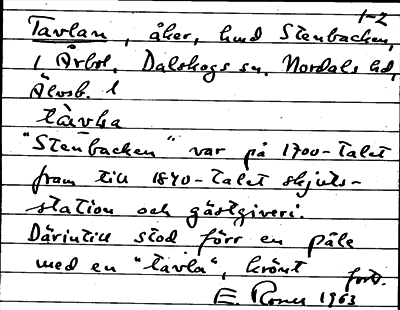 1-2
Tavlan, åker, hmd Stenbacken,
1 Årbol, Dalskogs sn. Nordals hd,
Älvsb. l
tàvḷa
"Stenbacken" var på 1700-talet
fram till 1840-talet skjuts-
station och gästgiveri.
Därintill stod förr en påle
med en "tavla", krönt
forts.
E. Rosen 1963